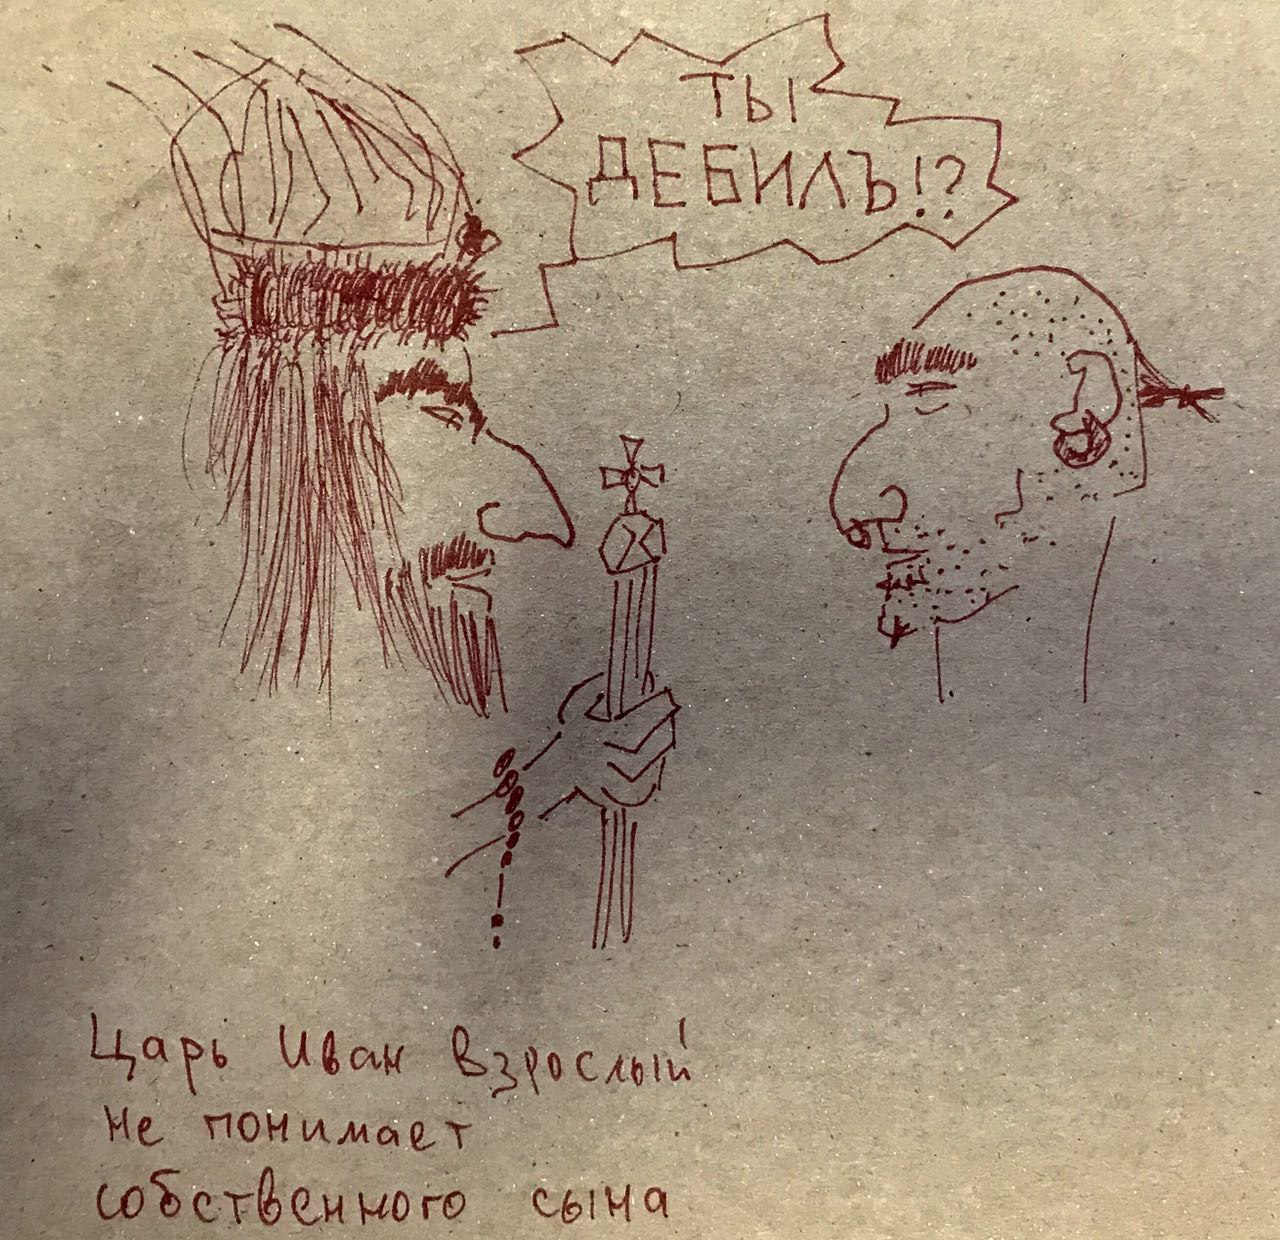 ТЫ
ДЕБИЛЪ!?
Царь Иван Взрослый
Не понимает
собственного сына